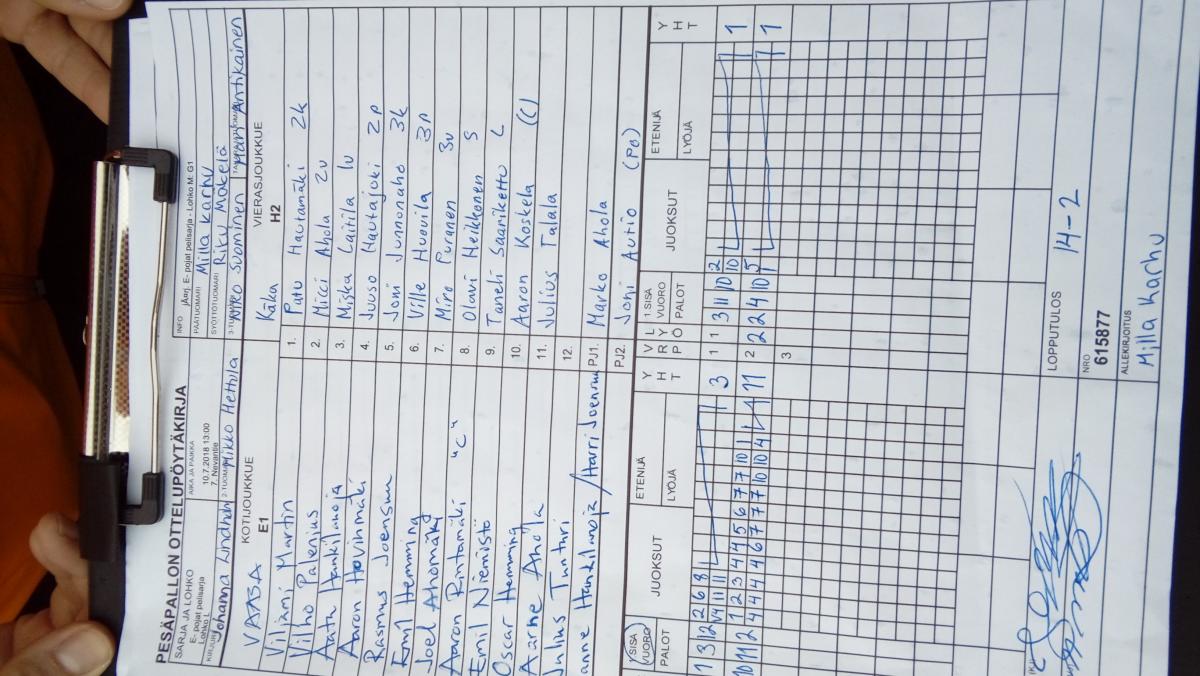 PESÄPALLON OTTELUPÖYTÄKIRJA
SARJA JA LOHKO
E- pojat pelisarja
Lohko L
AIKA JA PAIKKA
10.7.2018 13:00
7. Nevantie
INFO jÄarj. E- pojat pelisarja - Lohko M: G1
PÄÄTUOMARI Milla Karhu
SYÖTTÖTUOMARI Riku Mäkelä
KIRJURI Johanna Lindholm
2-TUOMARI Mikko Hettula
Niko Suominen
Harri Antikainen
KOTIJOUKKUE
E1
VAASA
VIERASJOUKKUE
H2
Käka
Viljami Martin
1. Patu Hautamäki 2k
Vilho Palvenjus
2. Miici Ahola 2v
3. Miska Laitila 1v
Aaron Hovinmäki
4. Juuso Hautajoki 2p
Rasmus Joensuu
5. Joni Junnonaho 3k
Emil Hemming
6. Ville Huovila 3p
Joel Ahomäky
7. Miro Puranen 3v
Aaron Rintamäki "C"
8. Olavi Heikkonen S
Emil Niemistö
9. Taneli Saarikettu L
Oscar Hemming
10. Aaron Koskela (C)
Aarne Ahola
11. Julius Talala
Julius Tunturi
12.
PJ1. Marko Ahola
PJ2. Joni Autio (PO)
SISÄ VUORO
PALOT
JUOKSUT
ETENIJÄ
LYÖJÄ
YHT
VRP
LYÖ
1.SISÄ VUORO
PALOT
JUOKSUT
ETENIJÄ
LYÖJÄ
YHT
1 3 12 2 6 8 3 1 1 3 11 10 2 1
11 11 10
10 11 2 1 2 3 4 4 5 6 7 7 10 1 11 2 2 2 4 10 5 1
4 4 4 4 6 7 7 7 10 10 4
3
LOPPUTULOS 14-2
NRO
615877
ALLEKIRJOITUS
Milla Karhu